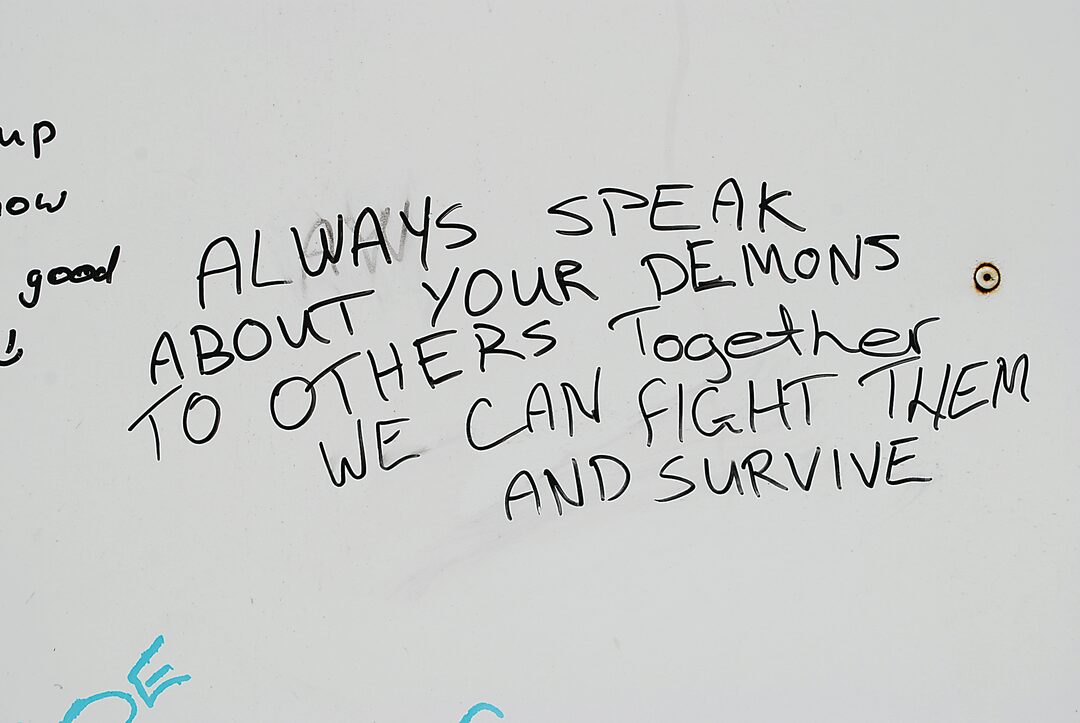 up
good
ALWAYS SPEAK
ABOUT YOUR DEMONS
TO OTHERS Together
WE CAN FIGHT THEM
AND SURVIVE